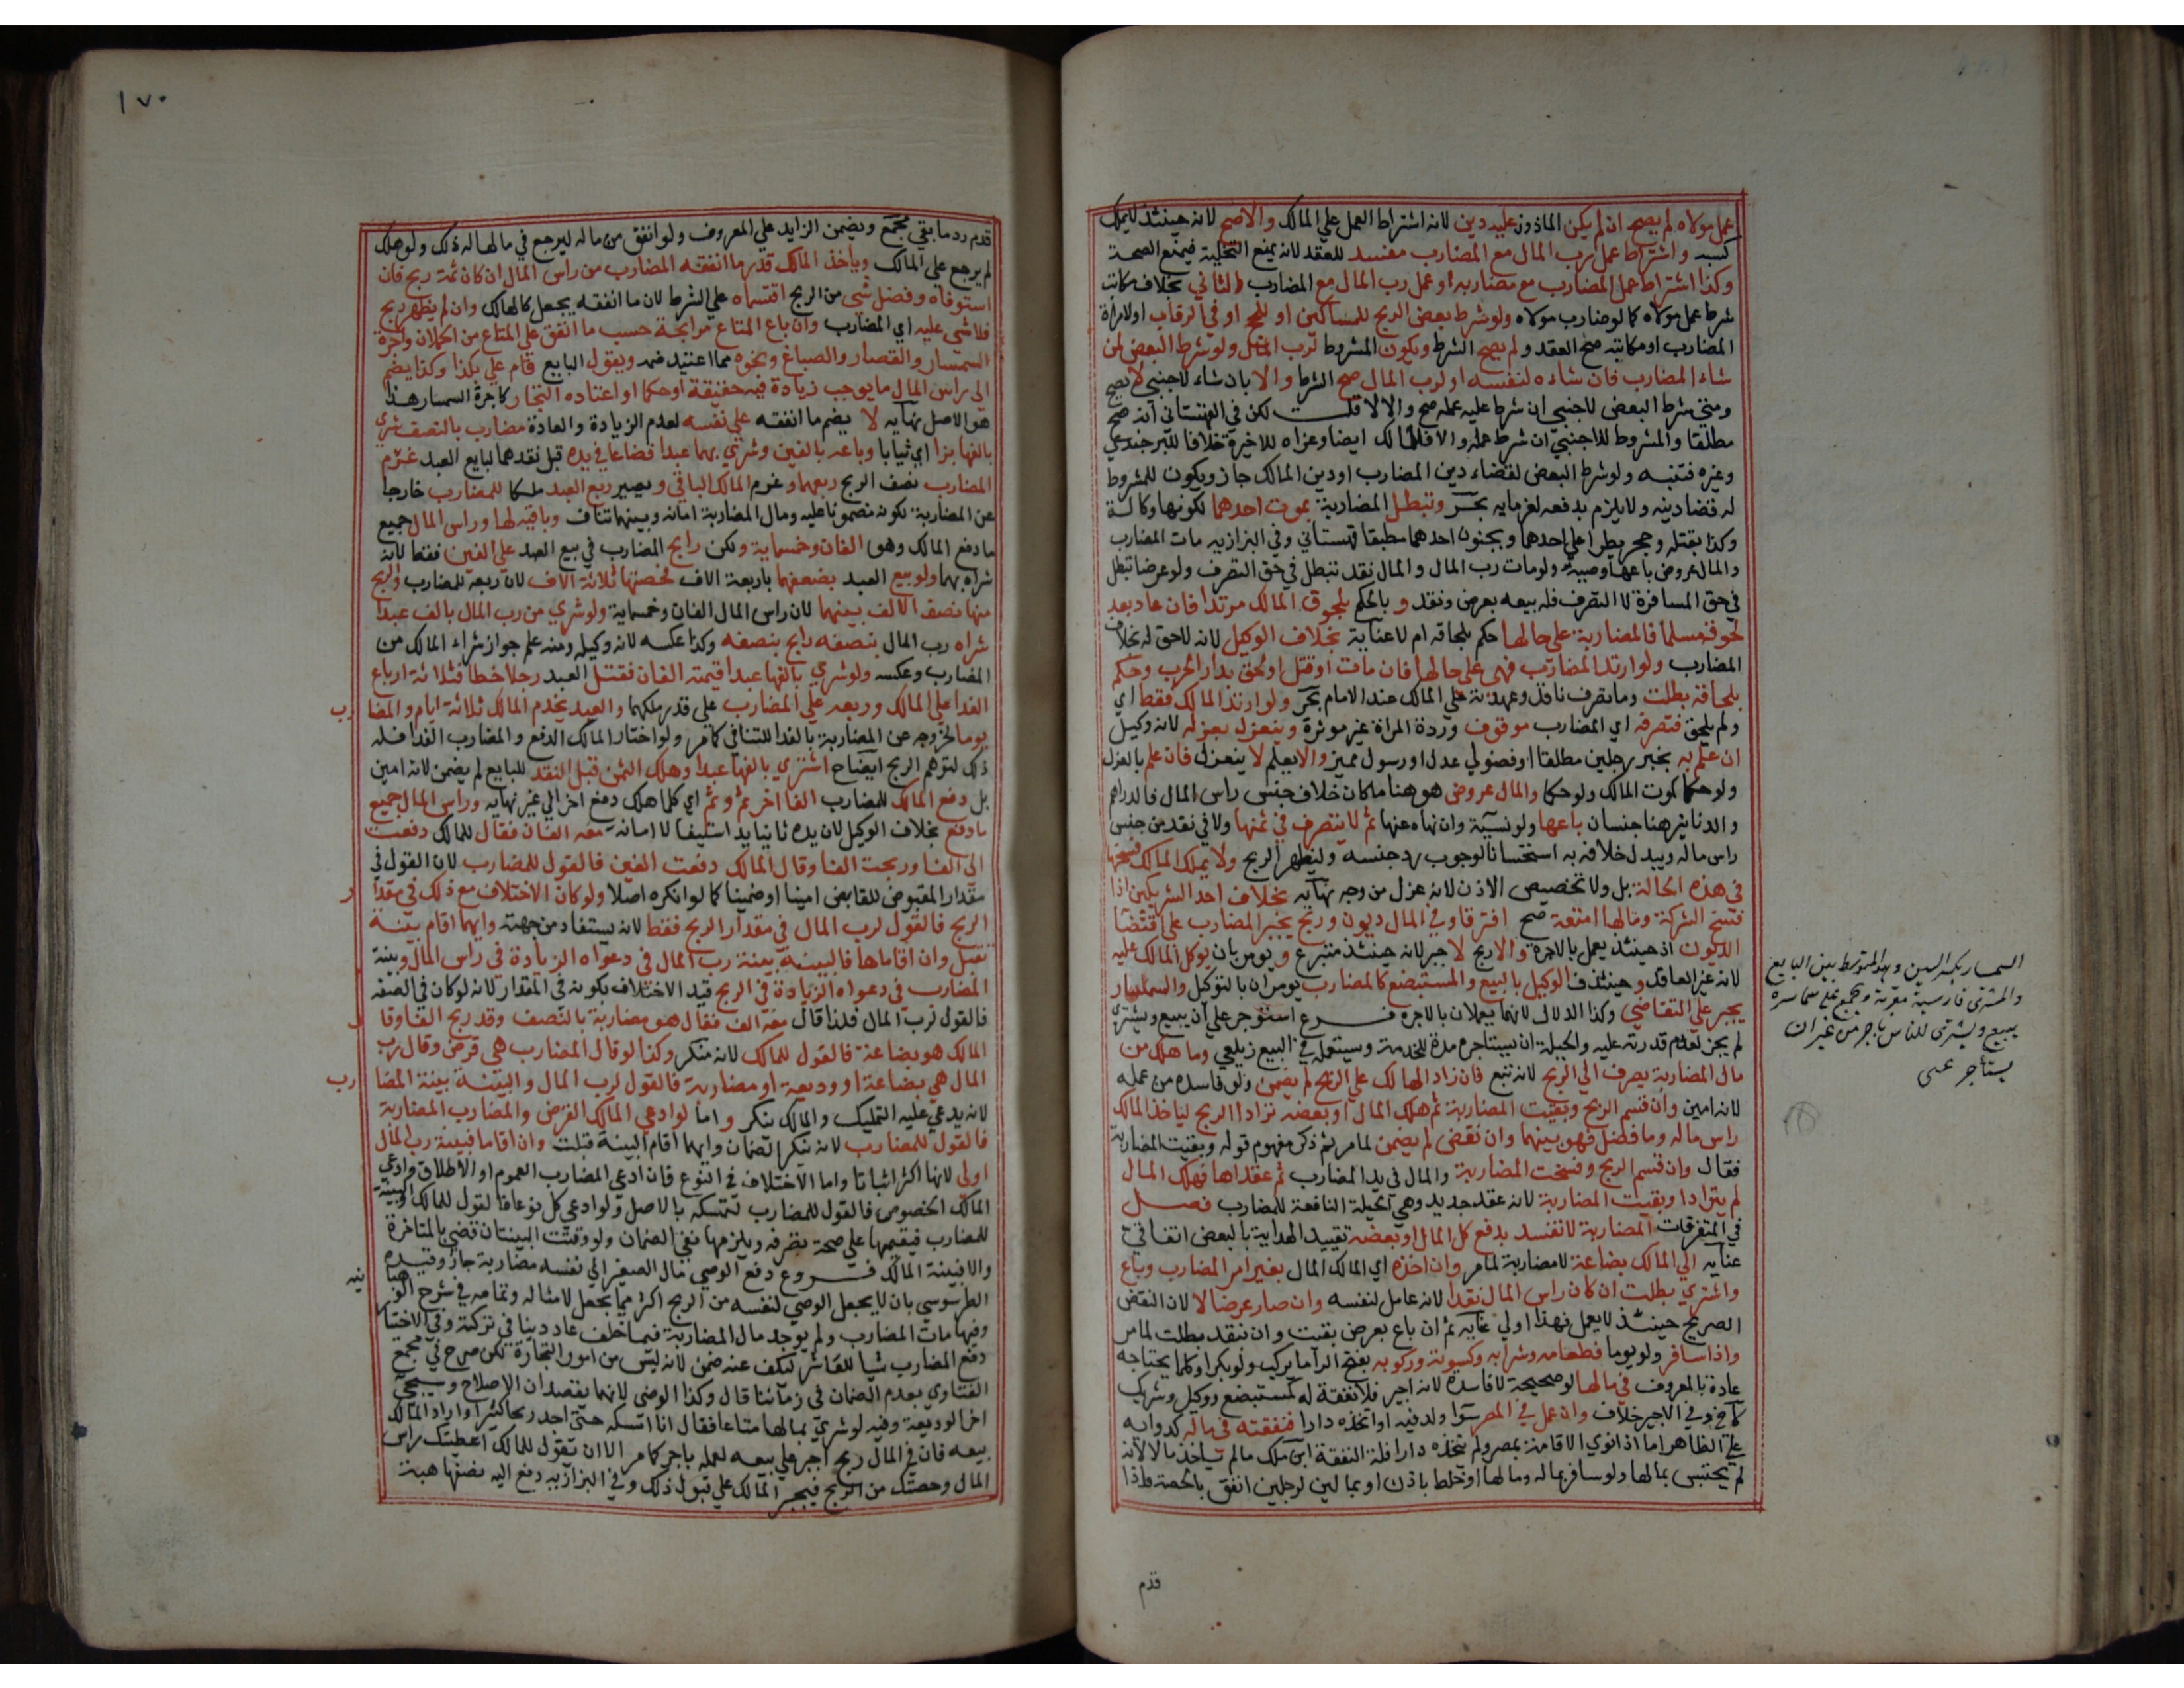 عمل مولاه لم يصح ان لم يكن الماذون عليه دين لانه اشتراط العمل علي المالك والاصح لانه حينئذ لايملك
كسبه واشتراط عمل رب المال مع المضارب مفسد للعقد لانه يمنع التخلية فيمنع الصحة
وكذا اشتراط عمل المضارب مع مضاربه او عمل رب المال مع المضارب الثاني بخلاف مكاتب
شرط عمل مولاه كما لو ضارب مولاه ولو شرط بعض الربح للمساكين او للحج او في الرقاب او لامراة
المضارب او مكاتبه صح العقد ولم يصح الشرط ويكون المشروط لرب المال ولو شرط البعض لمن
شاء المضارب فان شاءه لنفسه او لرب المال صح الشرط والا بان شاء لاجنبي لا يصح
ومتي شرط البعض لاجنبي ان شرط عليه عمله صح والا لا قلت لكن في القهستاني انه صح
مطلقا والمشروط للاجنبي ان شرط عمله والا فللمالك ايضا وعزاه للاخيرة خلافا للبرجندي
وغيره فتنبه ولو شرط البعض لقضاء دين المضارب او دين المالك جاز ويكون للمشروط
له قضا دينه ولا يلزم بدفعه لغرمايه بحر وتبطل المضاربة بموت احدهما لكونها وكالة
وكذا بقتله وحجر يطرا علي احدهما وبجنون احدهما مطبقا قهستاني وفي البزازيه مات المضارب
والمال عروض باعها وصيه ولو مات رب المال والمال نقد تبطل في حق التصرف ولو عرضا تبطل
في حق المسافرة لا التصرف فله بيعه بعرض ونقد و بالحكم بلحوق المالك مرتدا فان عاد بعد
لحوقه مسلما فالمضاربة علي حالها حكم بلحاقه ام لا عناية بخلاف الوكيل لانه لا حق له بخلاف
المضارب ولو ارتد المضارب فهي علي حالها فان مات او قتل او لحق بدار الحرب وحكم
بلحاقه بطلت وما تصرف نافذ وعهدته علي المالك عند الامام بحر ولو ارتد المالك فقط اي
ولم يلحق فتصرفه اي المضارب موقوف وردة المراة غير موثرة وينعزل بعزله لانه وكيل
ان علم به بخبر رجلين مطلقا او فضولي عدل او رسول مميز والا يعلم لا ينعزل فان علم بالعزل
ولو حكما كموت المالك ولو حكما والمال عروض هو هنا ما كان خلاف جنس راس المال فالدراهم
والدنانير هنا جنسان باعها ولو نسية وان نهاه عنها ثم لا يتصرف في ثمنها ولا في نقد من جنس
راس ماله ويبدل خلافه به استحسانا لوجوب رد جنسه وليظهر الربح ولا يملك المالك فسخها
في هذه الحالة بل ولا تخصيص الاذن لانه عزل من وجه نهايه بخلاف احد الشريكين اذا
فسخ الشركة ومالها امتعة صح افترقا وفي المال ديون وربح يجبر المضارب علي اقتضا
الديون اذ حينئذ يعمل بالاجرة والا ربح لا جبر لانه حينئذ متبرع ويومر بان يوكل المالك عليه
لانه غير العاقد و حينئذ فالوكيل بالبيع والمستبضع كالمضارب يومران بالتوكيل والسمسار
يجبر علي التقاضي وكذا الدلال لانهما يعملان بالاجره فرع استوجر علي ان يبيع ويشتري
لم يجز لعدم قدرته عليه والحيلة ان يستاجره مدة للخدمة ويستعمله في البيع زيلعي وما هلك من
مال المضاربة يصرف الي الربح لانه تبع فان زاد الهالك علي الربح لم يضمن ولو فاسده من عمله
لانه امين وان قسم الربح وبقيت المضاربة ثم هلك المال او بعضه ترادا الربح لياخذ المالك
راس ماله وما فضل فهو بينهما وان نقص لم يضمن لما مر ثم ذكر مفهوم قوله وبقيت المضاربة
فقال وان قسم الربح وفسخت المضاربة والمال في يد المضارب ثم عقداها فهلك المال
لم يترادا وبقيت المضاربة لانه عقد جديد وهي الحيلة النافعة للمضارب فصل
في المتفرقات المضاربة لا تفسد بدفع كل المال او بعضه تقييد الهداية بالبعض اتفاقي
عنايه الي المالك بضاعة لا مضاربة لما مر وان اخذه اي المالك المال بغير امر المضارب وباع
واشتري بطلت ان كان راس المال نقدا لانه عامل لنفسه وان صار عرضا لا لان النقض
الصريح حينئذ لا يعمل فهذا اولي عنايه ثم ان باع بعرض بقيت وان بنقد بطلت لما مر
واذا سافر ولو يوما فطعامه وشرابه وكسوته وركوبه بفتح الراء ما يركب ولو بكراء وكلما يحتاجه
عادة بالمعروف في مالها لو صحيحة لا فاسدة لانه اجير فلا نفقة له كمستبضع ووكيل وشريك
كافي وفي الاخير خلاف وان عمل في المصر سوا ولد فيه او اتخذه دارا فنفقته في ماله كدوائه
علي الظاهر اما اذا نوي الاقامة بمصر ولم يتخذه دارا فله النفقة ابن ملك ما لم ياخذ مالا لانه
لم يحتبس بمالها ولو سافر بماله ومالها او خلط باذن او بمالين لرجلين انفق بالحصة واذا
قدم
السمسار بكسر السين وهو المتوسط بين البايع
والمشتري فارسية معربة وجمع علي سماسرة
يبيع ويشتري للناس باجر من غير ان
يستأجر عيني
١٧٠
قدم رد ما بقي مجمع ويضمن الزايد علي المعروف ولو انفق من ماله ليرجع في مالها له ذلك ولو هلك
لم يرجع علي المالك وياخذ المالك قدر ما انفقه المضارب من راس المال ان كان ثمة ربح فان
استوفاه وفضل شي من الربح اقتسماه علي الشرط لان ما انفقه يجعل كالهالك وان لم يظهر ربح
فلا شي عليه اي المضارب وان باع المتاع مرابحة حسب ما انفق علي المتاع من الحملان واجرة
السمسار والقصار والصباغ ونحوه مما اعتيد ضمه ويقول البايع قام علي بكذا وكذا يضم
الي راس المال ما يوجب زيادة فيه حقيقة او حكما او اعتاده التجار كاجرة السمسار هذا
هو الاصل نهايه لا يضم ما انفقه علي نفسه لعدم الزيادة والعادة مضارب بالنصف شري
بالفها بزا اي ثيابا وباعه بالفين وشري بهما عبدا فضاعا في يده قبل نقدهما لبايع العبد غرم
المضارب نصف الربح ربعهما وغرم المالك الباقي ويصير ربع العبد ملكا للمضارب خارجا
عن المضاربة لكونه مضمونا عليه ومال المضاربة امانة وبينهما تناف وباقيه لها وراس المال جميع
ما دفع المالك وهو الفان وخمسماية ولكن رابح المضارب في بيع العبد علي الفين فقط لانه
شراه بهما ولو بيع العبد بضعفهما باربعة الاف فحصتها ثلاثة الاف لان ربعه للمضارب والربح
منها نصف الالف بينهما لان راس المال الفان وخمسماية ولو شري من رب المال بالف عبدا
شراه رب المال بنصفه رابح بنصفه وكذا عكسه لانه وكيله ومنه علم جواز شراء المالك من
المضارب وعكسه ولو شري بالفها عبدا قيمته الفان فقتل العبد رجلا خطا فثلاثة ارباع
الفدا علي المالك وربعه علي المضارب علي قدر ملكهما والعبد يخدم المالك ثلاثة ايام والمضارب
يوما لخروجه عن المضاربة بالفدا للتنافي كما مر ولو اختار المالك الدفع والمضارب الفدا فله
ذلك لتوهم الربح ايضاح اشتري بالفها عبدا وهلك الثمن قبل النقد للبايع لم يضمن لانه امين
بل دفع المالك للمضارب الفا اخر ثم وثم اي كلما هلك دفع اخر الي غير نهايه وراس المال جميع
ما دفع بخلاف الوكيل لان يده ثانيا يد استيفا لا امانة معه الفان فقال للمالك دفعت
الي الفا وربحت الفا وقال المالك دفعت الفين فالقول للمضارب لان القول في
مقدار المقبوض للقابض امينا او ضمينا كما لو انكره اصلا ولو كان الاختلاف مع ذلك في مقدار
الربح فالقول لرب المال في مقدار الربح فقط لانه يستفاد من جهته وايهما اقام بينة
تقبل وان اقاماها فالبينة بينة رب المال في دعواه الزيادة في راس المال وبينة
المضارب في دعواه الزيادة في الربح قيد الاختلاف بكونه في المقدار لانه لو كان في الصفه
فالقول لرب المال فلذا قال معه الف فقال هو مضاربة بالنصف وقد ربح الفا وقال
المالك هو بضاعة فالقول للمالك لانه منكر وكذا لو قال المضارب هي قرض وقال رب
المال هي بضاعة او وديعة او مضاربة فالقول لرب المال والبينة بينة المضارب
لانه يدعي عليه التمليك والمالك ينكر واما لو ادعي المالك القرض والمضارب المضاربة
فالقول للمضارب لانه ينكر الضمان وايهما اقام البينة قبلت وان اقاما فبينة رب المال
اولي لانها اكثر اثباتا واما الاختلاف في النوع فان ادعي المضارب العموم او الاطلاق وادعي
المالك الخصوص فالقول للمضارب لتمسكه بالاصل ولو ادعي كل نوعا فالقول للمالك والبينة
للمضارب فيقيمها علي صحة تصرفه ويلزمها نفي الضمان ولو وقتت البينتان قضي بالمتاخرة
والا فبينة المالك فروع دفع الوصي مال الصغير الي نفسه مضاربة جاز وقيده
الطرسوسي بان لا يجعل الوصي لنفسه من الربح اكثر مما يجعل لامثاله وتمامه في شرح الوهبانيه
وفيها مات المضارب ولم يوجد مال المضاربة فيما خلف عاد دينا في تركته وفي الاختيار
دفع المضارب شيا للعاشر ليكف عنه ضمن لانه ليس من امور التجارة لكن صرح في مجمع
الفتاوي بعدم الضمان في زماننا قال وكذا الوصي لانهما يقصدان الاصلاح وسيجي
اخر الوديعة وفيه لو شري بمالها متاعا فقال انا امسكه حتي اجد ربحا كثيرا واراد المالك
بيعه فان في المال ربح اجبر علي بيعه لعمله باجر كما مر الا ان يقول للمالك اعطيتك راس
المال وحصتك من الربح فيجبر المالك علي قبول ذلك وفي البزازيه دفع اليه نصفها هبة